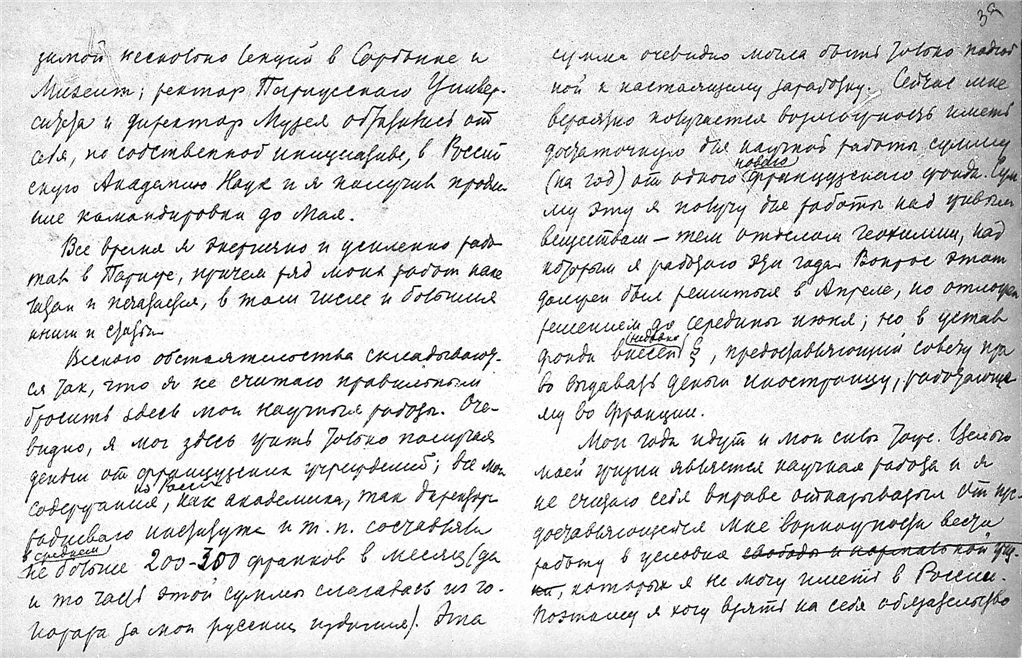 зимой несколько лекций в Сорбонне и
Музеит; ректор Парижского Универ-
ситета и директор Музея обратились от
себя, по собственной инициативе, в Россий
скую Академию Наук и я получил продле
ние командировки до Мая.
Все время я энергично и усиленно рабо
тал в Париже, причем ряд моих работ напе
чатан и печатается, в том числе и большия
книги и статьи
Весною обстоятельства складывают-
ся так, что я не считаю правильным
бросить здесь мои научныя работы. Оче-
видно, я мог здесь жить только получая
деньги от французских учреждений; все мои
содержания из России, как академика, так директор
радиеваго института и т. п. составляли
в среднем
не больше 200-300 франков в месяц (да
и то часть этой суммы слагалась из го-
норара за мои русския издания). Эта
3а
сумма очевидно могла быть только подсоб
ной к настоящему заработку. Сейчас мне
вероятно получается возможность иметь
достаточную для научной работы сумму
(на год) от одного новаго французскаго фонда. Сум
му эту я получу для работы над живым
веществом — тем отделом геохимии, над
которым я работаю эти года. Вопрос этот
должен был решиться в Апреле, но отложен
решением до середины июня; но в устав
фонда недавно внесен §, предоставляющий совету пра
во выдавать деньги иностранцу, работающе
му во Франции.
Мои года идут и мои силы тоже. Целью
моей жизни является научная работа и я
не считаю себя вправе отказываться от пре
доставляющейся мне возможности вести
работу в условиях свободы и нормальной жиз
ни, которых я не могу иметь в России.
Поэтому я хочу взять на себя обязательство